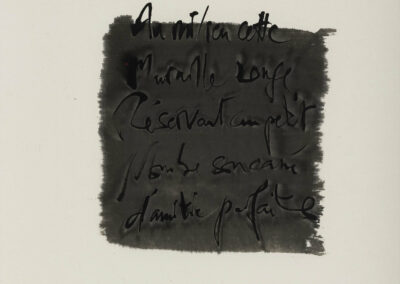 Au milieu cette
Muraille rouge
Réservant un petit
Nombre
d'amitié parfaite